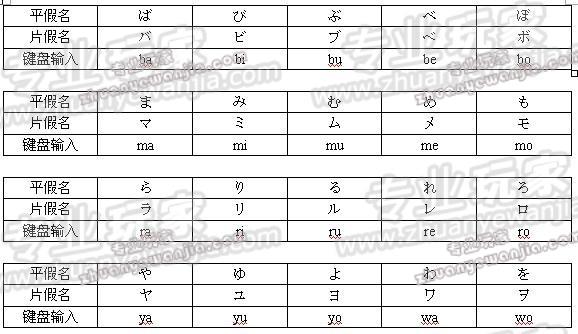 平假名 ば び ぶ べ ぼ
片假名 バ ビ ブ ベ ボ
键盘输入 ba bi bu be bo
平假名 ま み む め も
片假名 マ ミ ム メ モ
键盘输入 ma mi mu me mo
平假名 ら り る れ ろ
片假名 ラ リ ル レ ロ
键盘输入 ra ri ru re ro
平假名 や ゆ よ わ を
片假名 ヤ ユ ヨ ワ ヲ
键盘输入 ya yu yo wa wo
专业玩家
www.zhuanyewanjia.com